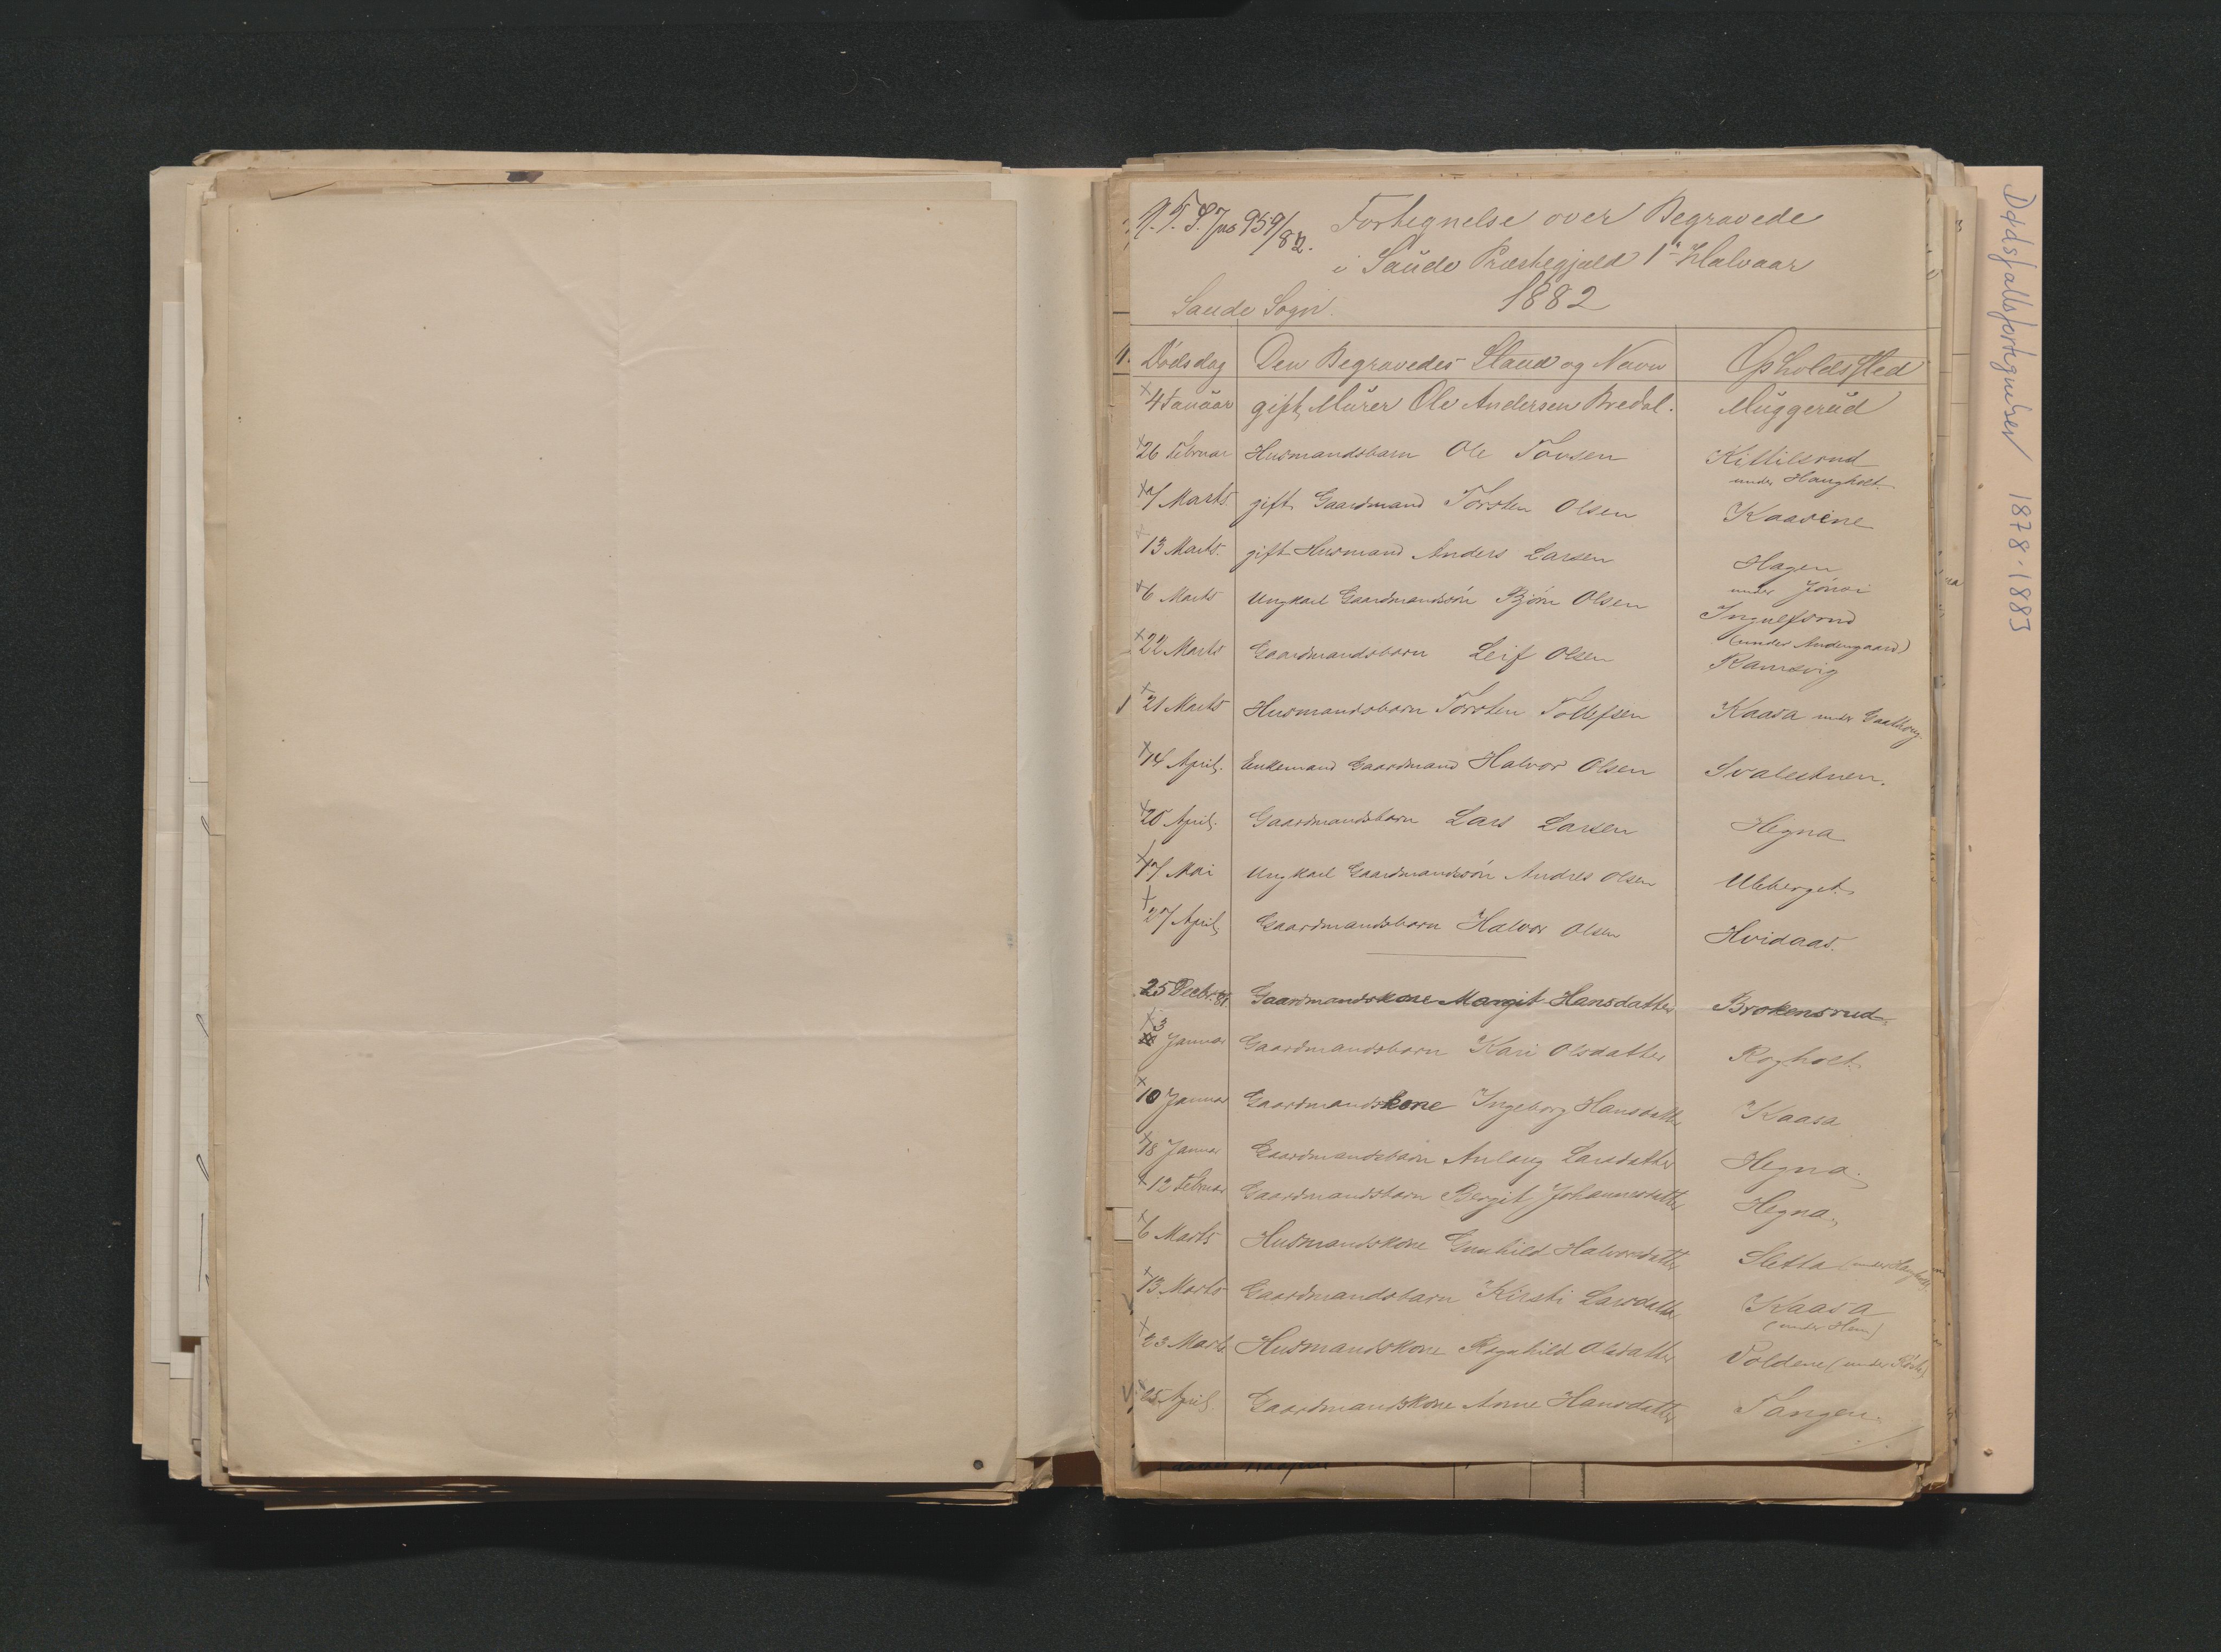 N.T.S. Jno 959/82. Fortegnelse over Begravede
i Saude Præstegjæld 1ste Halvaar
Saude Sogn. 1882
Dödsdag Den Begravedes Stand og Navn Opholdssted
4 Januar gift Murer Ole Andersen Bredal. Muggerud
26 Februar Husmandsbarn Ole Tovsen Kittilsrud
under Haugholt
7 Marts. gift Gaardmand Torsten Olsen Kaasene
13 Marts. gift Husmand Anders Larsen Hagen
under Jönsi
6 Marts Ungkarl Gaardmandssön Björn Olsen Ingulfsrud
(under Andersgaard)
22 Marts Gaardmandsbarn Leif Olsen Ramsvig
21 Marts Husmandsbarn Torsten Tollefsen Kaasa under
14 April. Enkemand Gaardmand Halvor Olsen Svalestuen.
20 April. Gaardmandsbarn Lars Larsen Hegna
17 Mai Ungkarl Gaardmandssön Andres Olsen Uleberget.
27 April Gaardmandsbarn Halvor Olsen Hvidaas.
25 Decbr. 81 Gaardmandskone Margit Hansdatter Brokensrud
3 Januar Gaardmandsbarn Kari Olsdatter Rogholt.
10 Januar Gaardmandskone Ingeborg Hansdatter Kaasa
18 Januar Gaardmandsbarn Anlaug Larsdatter Hegna.
12 Februar Gaardmandsbarn Bergit Johannesdatter Hegna.
6 Marts Husmandskone Gunhild Halvorsdatter Sletta (under Haugholt)
13 Marts Gaardmandsbarn Kirsti Larsdatter Kaasa
(under Hem)
23 Marts Husmandskone Ragnhild Olsdatter Voldene (under
25 April. Gaardmandskone Anne Hansdatter Tangen.
Dødsfallsfortegnelser 1878-1883